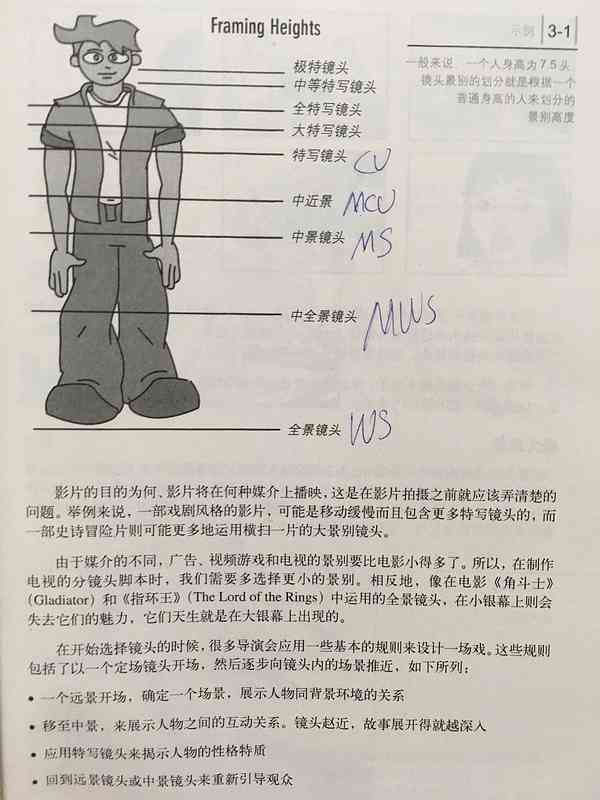 Framing Heights
示例 3-1
一般来说，一个人身高为7.5头
镜头景别的划分就是根据一个
普通身高的人来划分的
景别高度
极特镜头
中等特写镜头
全特写镜头
大特写镜头
特写镜头 CU
中近景 MCU
中景镜头 MS
中全景镜头 MWS
全景镜头 WS
影片的目的为何、影片将在何种媒介上播映，这是在影片拍摄之前就应该弄清楚的
问题。举例来说，一部戏剧风格的影片，可能是移动缓慢而且包含更多特写镜头的，而
一部史诗冒险片则可能更多地运用横扫一片的大景别镜头。
由于媒介的不同，广告、视频游戏和电视的景别要比电影小得多了。所以，在制作
电视的分镜头脚本时，我们需要多选择更小的景别。相反地，像在电影《角斗士》
（Gladiator）和《指环王》（The Lord of the Rings）中运用的全景镜头，在小银幕上则会
失去它们的魅力，它们天生就是在大银幕上出现的。
在开始选择镜头的时候，很多导演会应用一些基本的规则来设计一场戏。这些规则
包括了以一个定场镜头开场，然后逐步向镜头内的场景推近，如下所列：
• 一个远景开场，确定一个场景，展示人物同背景环境的关系
• 移至中景，来展示人物之间的互动关系。镜头赵近，故事展开得就越深入
• 应用特写镜头来揭示人物的性格特质
• 回到远景镜头或中景镜头来重新引导观众